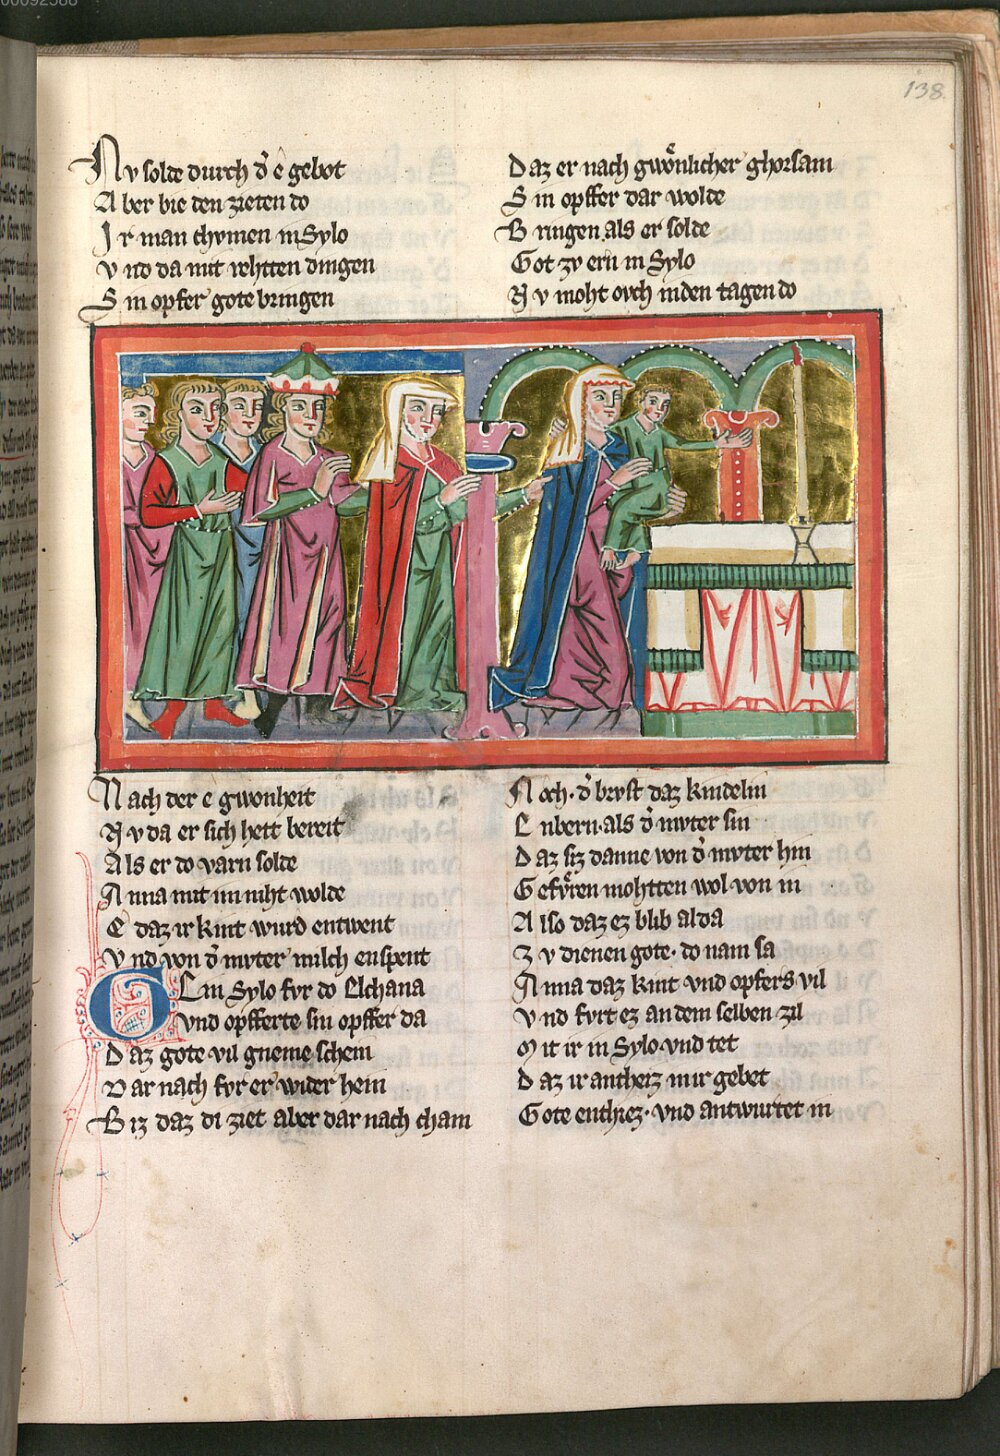 138.
Nv solde durch d̉ e gebot
Aber bie den zieten do
Ir man chvmen in Sylo
vnd da mit rehtten dingen
Sin opfer gote bringen
Nach der e gwonheit
Nv da er sich hett bereit
Als er do varn solde
Anna mit im niht wolde
E daz ir kint wurd entwent
vnd von d̉ mvter milch enspent
Gein Sylo fvr do Elchana
vnd opfferte sin opffer da
Daz gote vil gneme schein
Dar nach fvr er wider hein
Biz daz di ziet aber dar nach cham
Daz er nach gwönlicher ghorsam
Sin opffer dar wolde
Bringen als er solde
Got zv ern in Sylo
Nv moht ovch inden tagen do
Noch · d̉ brvst daz kindelin
Enbern · als d̉ mvter sin
Daz siz danne von d̉ mvter hin
Gefv̊ren mohtten wol von in
Also daz ez blib alda
Zv dienen gote · do nam sa
Anna daz kint vnd opfers vil
vnd fvrt ez an dem selben zil
Mit ir in Sylo vnd tet
Daz ir antheiz mir gebet
Gote enthiez · vnd antwurtet in